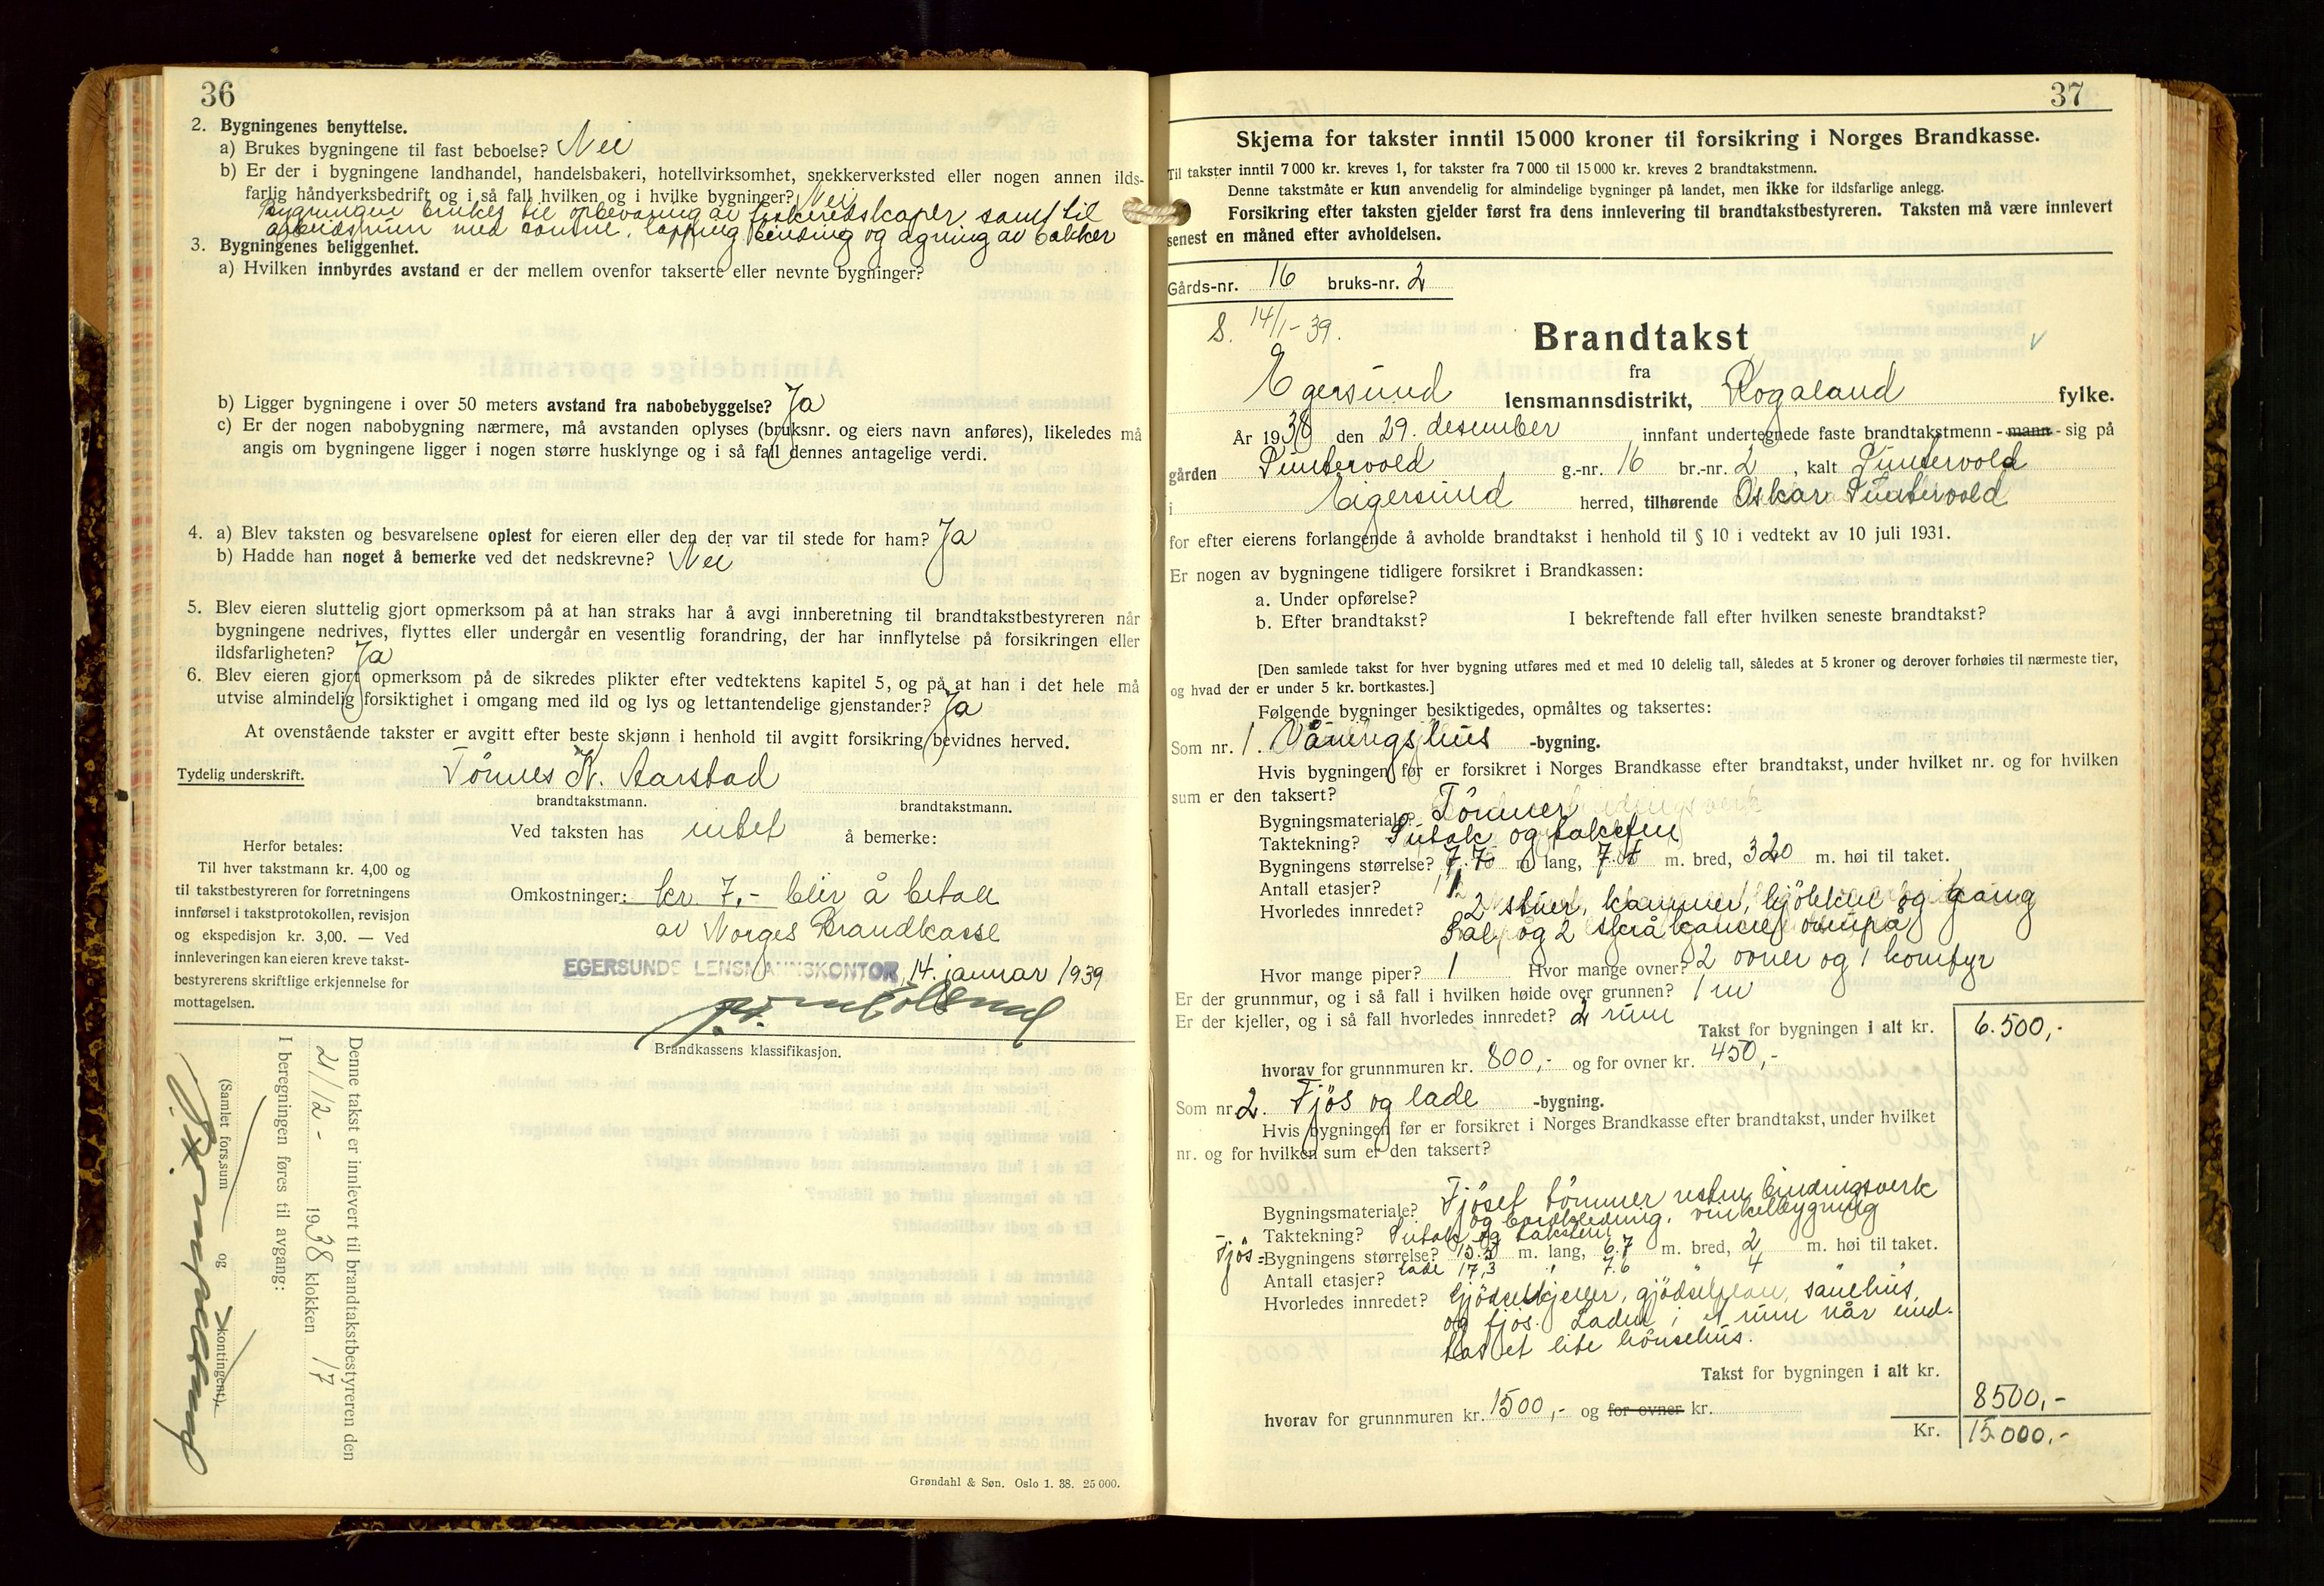 36
2. Bygningenes benyttelse.
a) Brukes bygningene til fast beboelse? Nei
b) Er der i bygningene landhandel, handelsbakeri, hotellvirksomhet, snekkerverksted eller nogen annen ilds-
farlig håndverksbedrift og i så fall hvilken og i hvilke bygninger? Nei
Bygningen brukes til opbevaring av fiskeredskaper samt til
arbeidsrum med
og egning av bakker
3. Bygningenes beliggenhet.
a) Hvilken innbyrdes avstand er der mellem ovenfor takserte eller nevnte bygninger?
b) Ligger bygningene i over 50 meters avstand fra nabobebyggelse? Ja
c) Er der nogen nabobygning nærmere, må avstanden oplyses (bruksnr. og eiers navn anføres), likeledes må
angis om bygningene ligger i nogen større husklynge og i så fall dennes antagelige verdi.
4. a) Blev taksten og besvarelsene oplest for eieren eller den der var til stede for ham? Ja
b) Hadde han noget å bemerke ved det nedskrevne? Nei
5. Blev eieren sluttelig gjort opmerksom på at han straks har å avgi innberetning til brandtakstbestyreren når
bygningene nedrives, flyttes eller undergår en vesentlig forandring, der har innflytelse på forsikringen eller
ildsfarligheten? Ja
6. Blev eieren gjort opmerksom på de sikredes plikter efter vedtektens kapitel 5, og på at han i det hele må
utvise almindelig forsiktighet i omgang med ild og lys og lettantendelige gjenstander? Ja
At ovenstående takster er avgitt efter beste skjønn i henhold til avgitt forsikring bevidnes herved.
Tydelig underskrift. Tönnes K. Aarstad
brandtakstmann. brandtakstmann.
Ved taksten has intet å bemerke:
Herfor betales:
Til hver takstmann kr. 4,00 og
til takstbestyreren for forretningens
innførsel i takstprotokollen, revisjon
og ekspedisjon kr. 3,00. — Ved
innleveringen kan eieren kreve takst-
bestyrerens skriftlige erkjennelse for
mottagelsen.
Omkostninger: kr. 7,- blir å betale
av Norges Brandkasse
EGERSUNDS LENSMANNSKONTOR, 14. januar 1939
Brandkassens klassifikasjon.
Denne takst er innlevert til brandtakstbestyreren den
21/12- 1938 klokken 17
I beregningen føres til avgang:
(Samlet fors.sum og kontingent)
Grøndahl & Søn. Oslo 1. 38. 25 000.
37
Skjema for takster inntil 15 000 kroner til forsikring i Norges Brandkasse.
Til takster inntil 7 000 kr. kreves 1, for takster fra 7 000 til 15 000 kr. kreves 2 brandtakstmenn.
Denne takstmåte er kun anvendelig for almindelige bygninger på landet, men ikke for ildsfarlige anlegg.
Forsikring efter taksten gjelder først fra dens innlevering til brandtakstbestyreren. Taksten må være innlevert
senest en måned efter avholdelsen.
Gårds-nr. 16 bruks-nr. 2
S. 14/1-39.
Brandtakst
fra
Egersund lensmannsdistrikt, Rogaland fylke.
År 1938 den 29. desember innfant undertegnede faste brandtakstmenn - mann - sig på
gården Puntervold, g.-nr. 16 br.-nr. 2, kalt Puntervold
i Eigersund herred, tilhørende Oskar Puntervold
for efter eierens forlangende å avholde brandtakst i henhold til § 10 i vedtekt av 10 juli 1931.
Er nogen av bygningene tidligere forsikret i Brandkassen:
a. Under opførelse?
b. Efter brandtakst? I bekreftende fall efter hvilken seneste brandtakst?
[Den samlede takst for hver bygning utføres med et med 10 delelig tall, således at 5 kroner og derover forhøies til nærmeste tier,
og hvad der er under 5 kr. bortkastes.]
Følgende bygninger besiktigedes, opmåltes og taksertes:
Som nr. 1. Våningshus -bygning.
Hvis bygningen før er forsikret i Norges Brandkasse efter brandtakst, under hvilket nr. og for hvilken
sum er den taksert?
Bygningsmateriale? Tömmer
Taktekning? Sutak og taksten
Bygningens størrelse? m. lang, m. bred, 320 m. høi til taket.
Antall etasjer? 1
Hvorledes innredet? 2 stuer, kammer, kjökken og gang
Sal og 2 skråkamre ovenpå
Hvor mange piper? 1 Hvor mange ovner? 2 ovner og 1 komfyr
Er der grunnmur, og i så fall i hvilken høide over grunnen? 1 m
Er der kjeller, og i så fall hvorledes innredet? 2 rum
Takst for bygningen i alt kr. 6.500,-
hvorav for grunnmuren kr. 800,- og for ovner kr. 450,-
Som nr 2. Fjös og lade -bygning.
Hvis bygningen før er forsikret i Norges Brandkasse efter brandtakst, under hvilket
nr. og for hvilken sum er den taksert?
Bygningsmateriale? Fjöset tömmer resten bindingsverk
og bordkledning. vinkelbygning
Taktekning? Sutak og taksten
Fjös= Bygningens størrelse? m. lang, 6.7 m. bred, 2 m. høi til taket.
Lade 17,3 " 7.6 " 4 " "
Antall etasjer?
Hvorledes innredet? Gjödselkjeller, gjödselplan, sauehus,
og fjös. Laden i et rum når und-
tas et lite hönsehus.
Takst for bygningen i alt kr. 8500,-
hvorav for grunnmuren kr. 1500,- og for ovner kr.
Kr. 15000,-